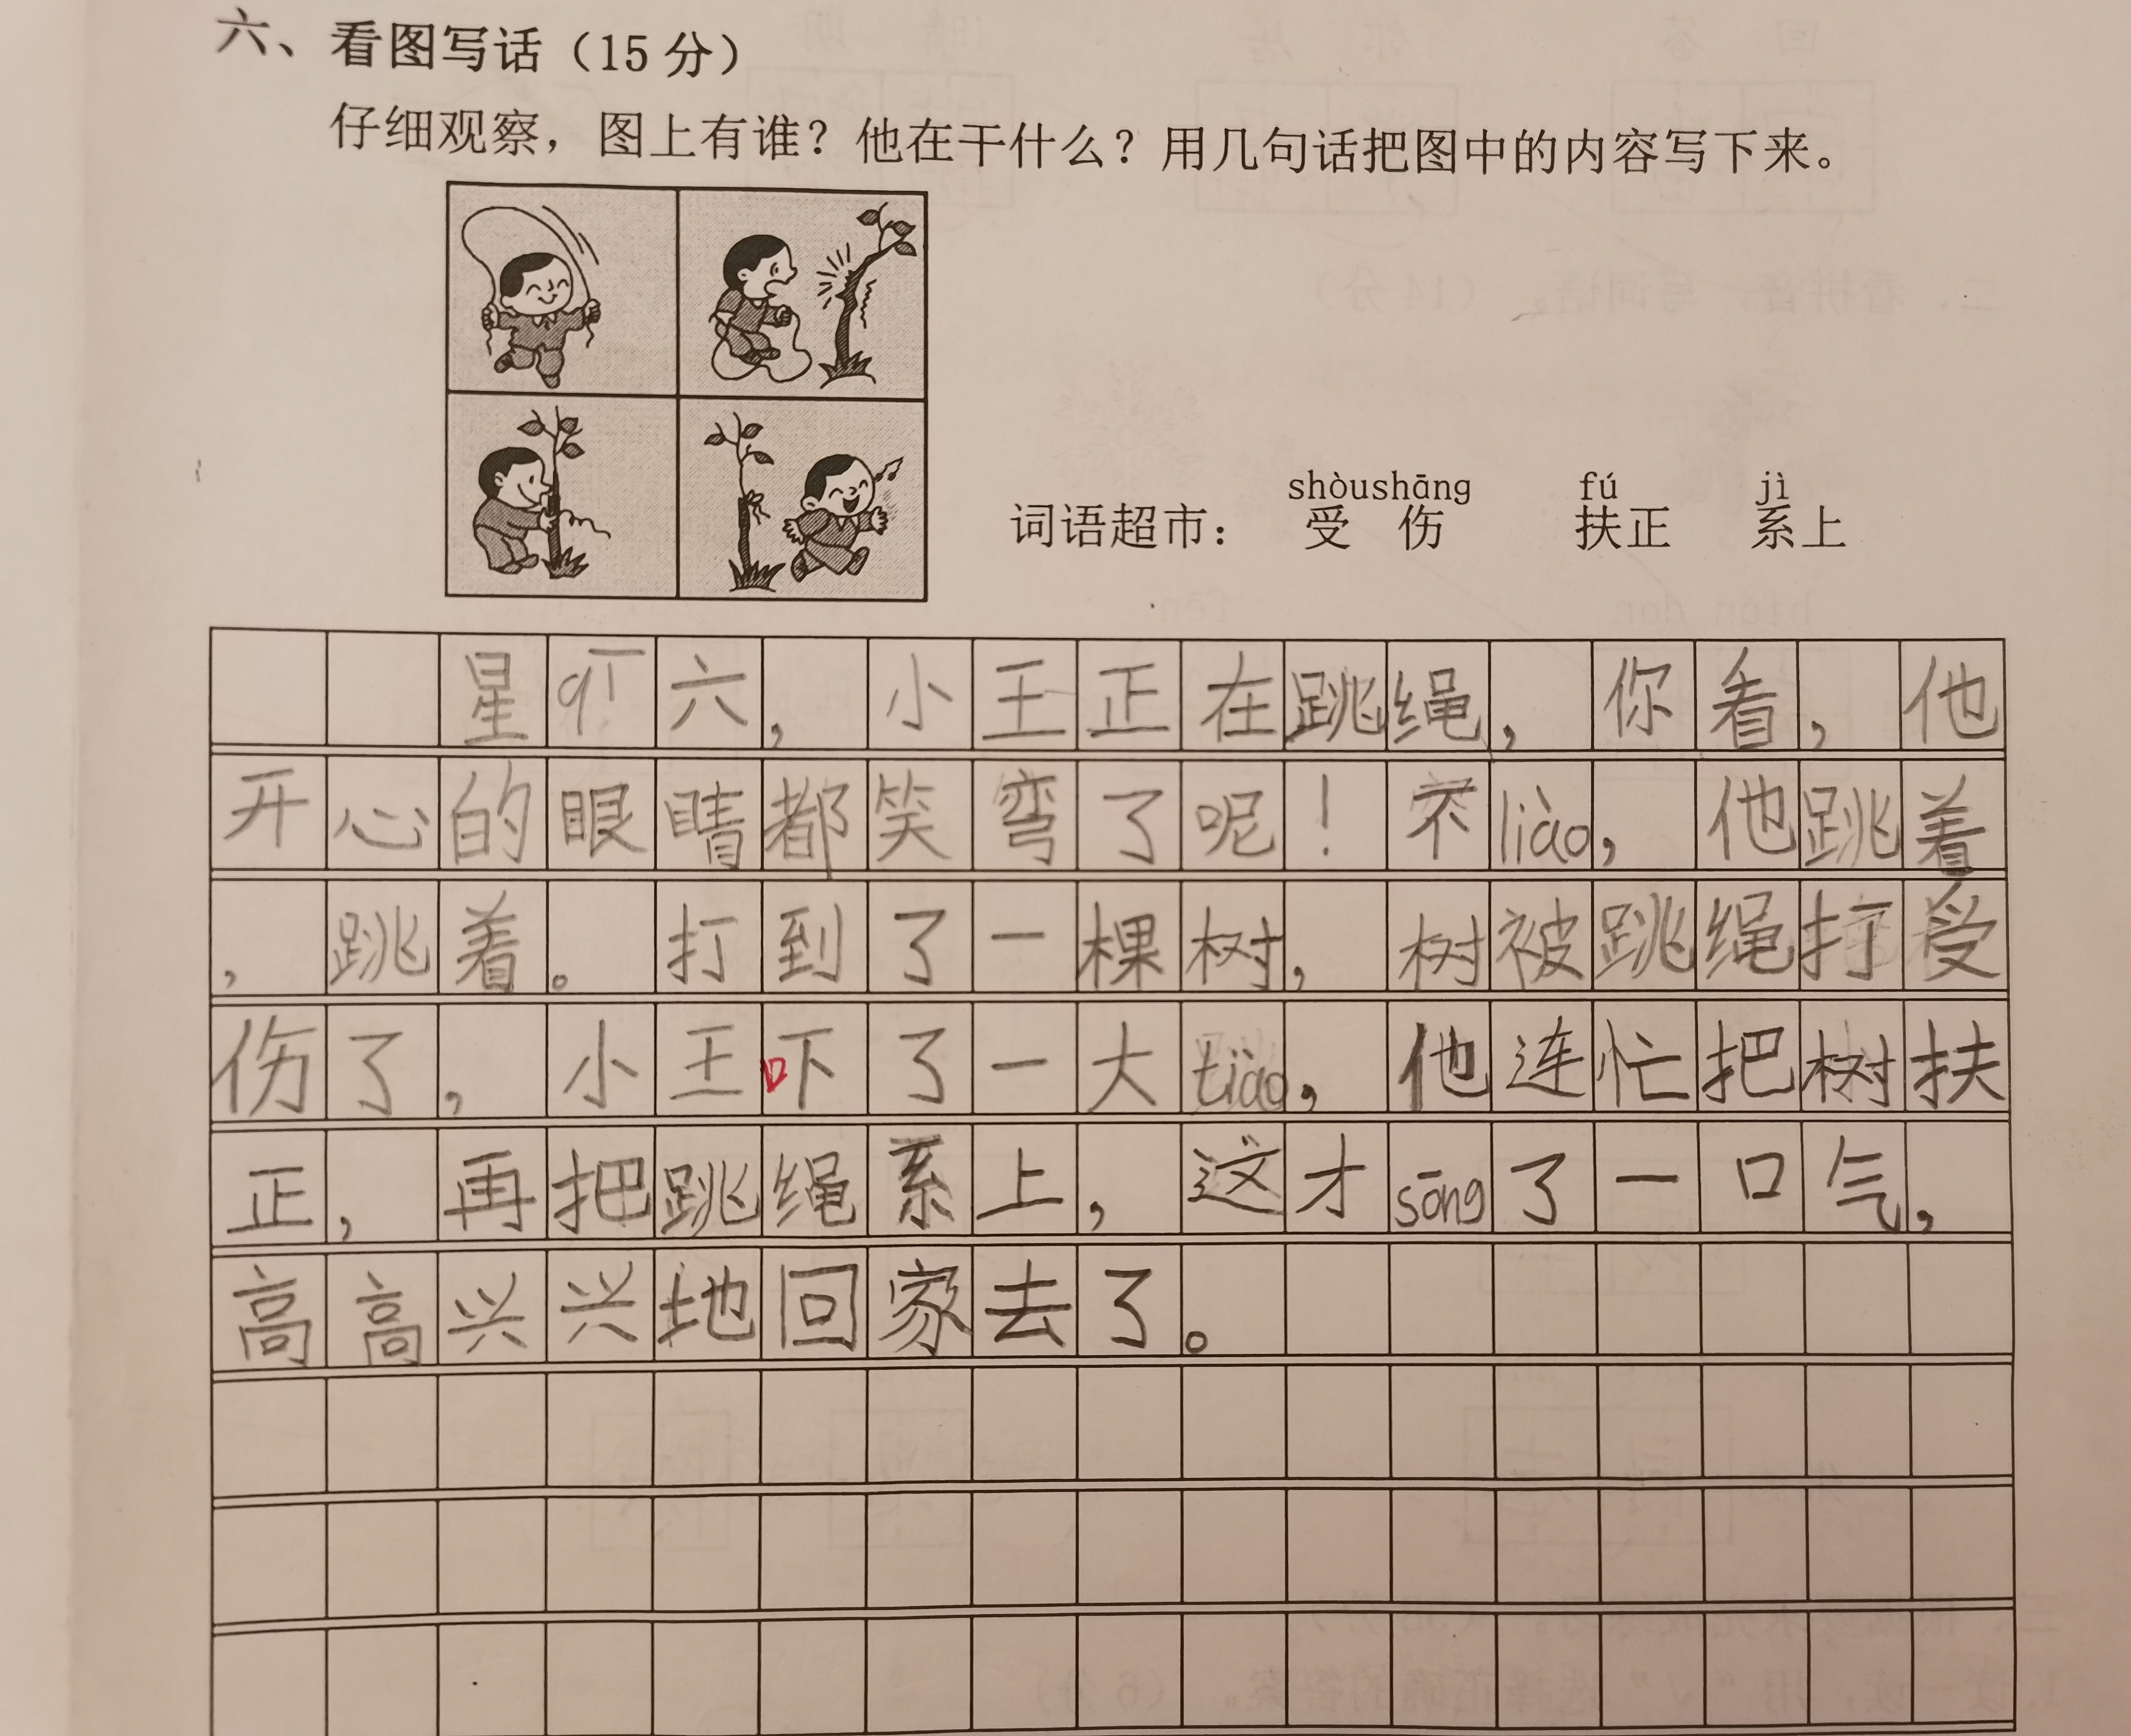 六、看图写话（15分）
仔细观察，图上有谁？他在干什么？用几句话把图中的内容写下来。
shòushāng fú jì
词语超市： 受 伤 扶正 系上
星qī六，小王正在跳绳，你看，他
开心的眼睛都笑弯了呢！不liào，他跳着
，跳着。打到了一棵树，树被跳绳打受
伤了，小王口下了一大tiào，他连忙把树扶
正，再把跳绳系上，这才sōng了一口气，
高高兴兴地回家去了。